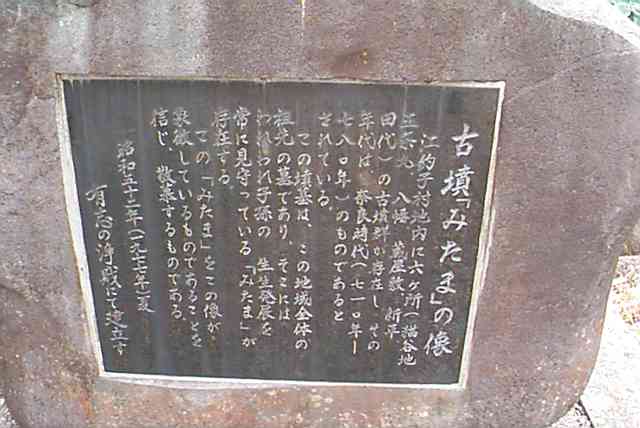 古墳「みたま」の像
江釣子村地内に六ケ所(猫谷地
五条丸 八幡 蔦屋敷 新平
田代)の古墳群が存在し、その
年代は、奈良時代(七一〇年ー
七八〇年)のものであると
されている。
この墳墓は、この地域全体の
祖先の墓であり、そこには
われわれ子孫の 生生発展を
常に見守っている「みたま」が
存在する。
この「みたま」をこの像が、
象徴しているものであることを
信じ、散華するものである。
昭和五十二年(一九七七年)夏
有志の浄財にて建立す